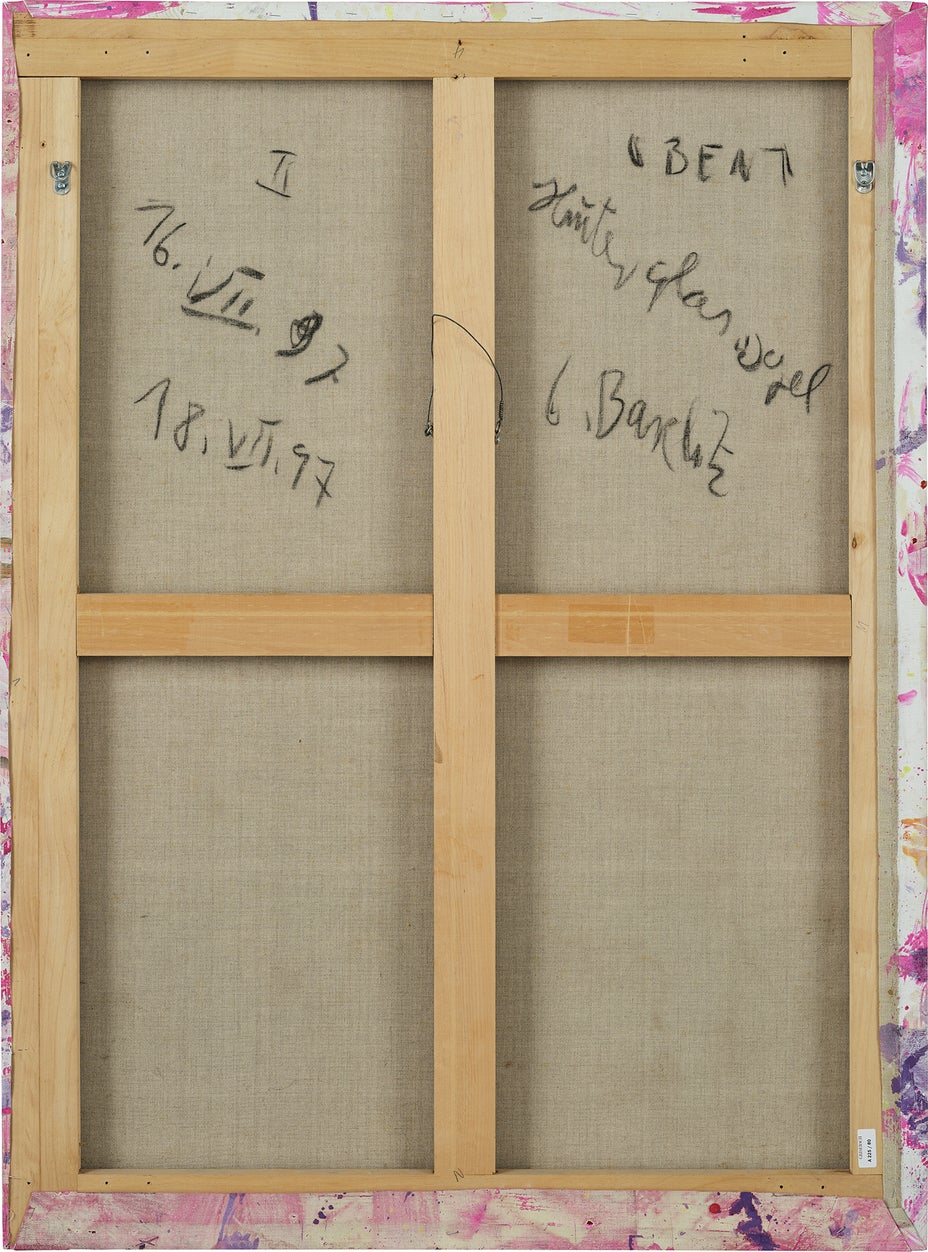 II
16. VII. 97
18. VII. 97
BENT
Hinterglasvogel
G. Baselitz
A 225 / 80